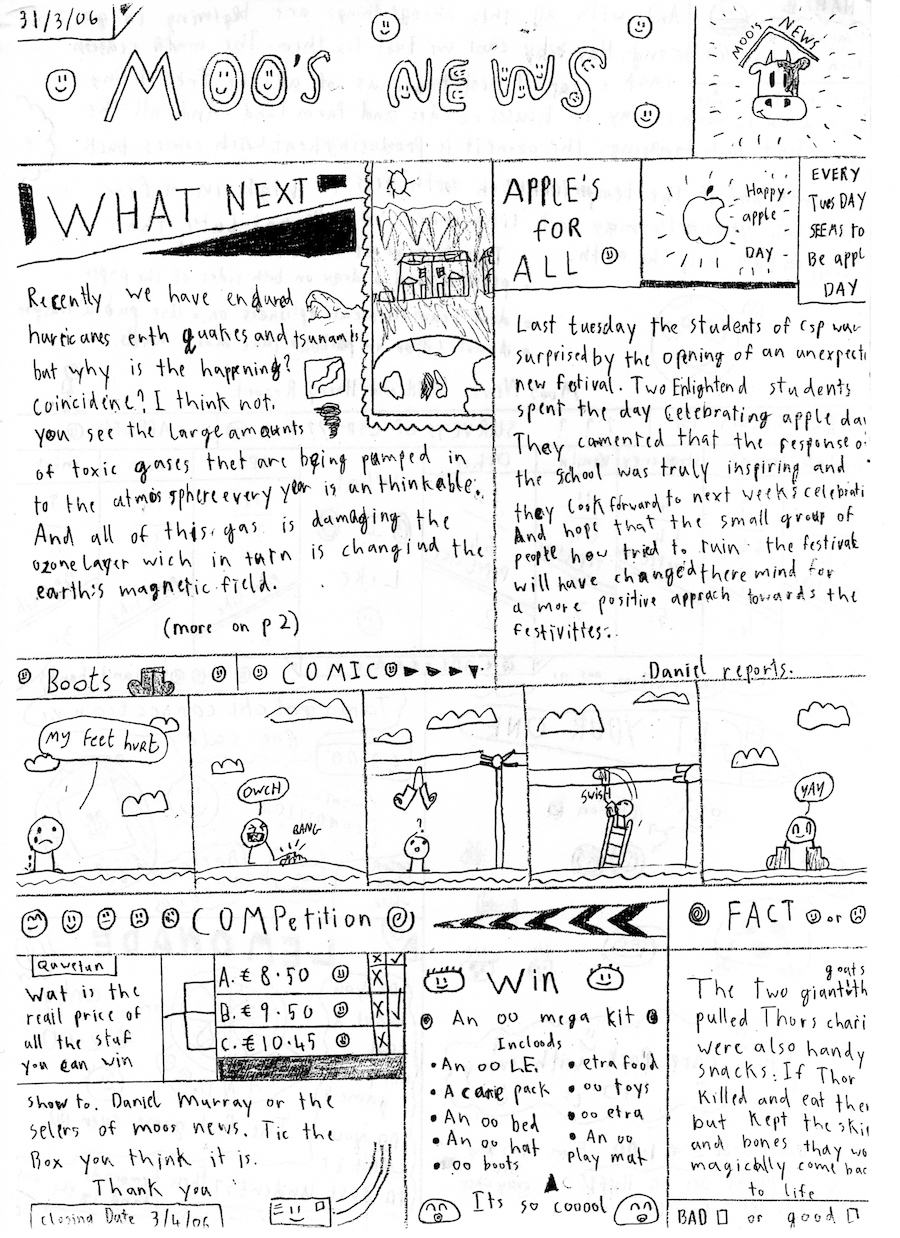 31/3/06
MOO'S NEWS
MOO'S NEWS
WHAT NEXT
Recently we have endured
hurricanes erth quakes and tsunamis
but why is the happening?
coincidene? I think not.
you see the large amounts
of toxic gases thet are being pumped in
to the atmosphere every year is an thinkable.
And all of this gas is damaging the
ozone layer wich in turn is changind the
earth's magnetic field.
(more on p 2)
APPLE'S
FOR
ALL
Happy
apple
DAY
EVERY
TuesDAY
SEEMS to
Be appl
DAY
Last tuesday the students of csp wer
surprised by the opening of an unexpecte
new fetival. Two Enlightend students
spent the day Celebrating apple day
They comented that the response of
the school was truly inspiring and
they look forward to next weeks celebrati
And hope that the small group of
people how tried to ruin the festivale
will have changed there mind for
a more positive apprach towards the
festivittes.
.Daniel reports.
Boots
COMIC
My feet hurt
OWCH
BANG
?
SWISH
YAY
COMPetition
Quwetun
Wat is the
reail price of
all the stuf
you can win
A. € 8.50
B. € 9.50
C. € 10.45
show to. Daniel Murray or the
selers of moos news. Tic the
Box you think it is.
Thank you
closing Date 3/4/06
Win
An oo mega kit
Incloods
• An oo L.E.
• A care pack
• An oo bed
• An oo hat
• oo boots
• etra food
• oo toys
• oo etra
• An oo
play mat
Its so cooool
FACT or
The Two giant goats
pulled Thors chari
were also handy
snacks. If Thor
killed and eat them
but kept the skin
and bones thay wo
magically come bac
to life
BAD or good